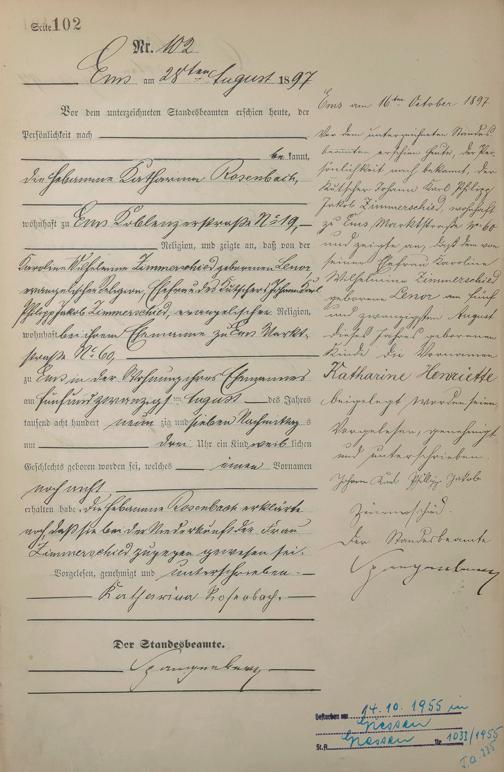 Seite 102
Nr. 102
Ems am 28ten August 1897
Vor dem unterzeichneten Standesbeamten erschien heute, der
Persönlichkeit nach
bekannt,
die Hebamme Katharina Rosenbach,
wohnhaft zu Ems Koblenzerstraße No 19,
Religion, und zeigte an, daß von der
Karoline Wilhelmine Zimmerschied geborenen Lenor,
evangelischer Religion, Ehefrau des Kutschers Johann Karl
Philipp Jakob Zimmerschied, evangelischer Religion,
wohnhaft bei ihrem Ehemanne zu Ems Markt-
straße No 60,
zu Ems in der Wohnung ihres Ehemannes
am fünfundzwanzigsten August des Jahres
tausend acht hundert neunzig und sieben Nachmittags
um drei Uhr ein Kind weiblichen
Geschlechts geboren worden sei, welches einen Vornamen
noch nicht
erhalten habe, die Hebamme Rosenbach erklärte
noch daß sie bei der Niederkunft der Frau
Zimmerschied zugegen gewesen sei.
Vorgelesen, genehmigt und unterschrieben.
Katharina Rosenbach.
Der Standesbeamte.
Spangenberg
Ems am 16ten October 1897
Vor dem unterzeichneten Standes
beamten erschien heute, der Per
sönlichkeit nach bekannt, der
Kutscher Johann Karl Philipp
Jakob Zimmerschied, wohnhaft
zu Ems, Marktstraße No 60
und zeigte an, daß dem von
seiner Ehefrau Karoline
Wilhelmine Zimmerschied
geborenen Lenor am fünf
und zwanzigsten August
dieses Jahres geborenen
Kinde die Vornamen
Katharine Henriette
beigelegt worden seien
Vorgelesen, genehmigt
und unterschrieben.
Johann Karl Philipp Jakob
Zimmerschied.
Der Standesbeamte
Spangenberg
Gestorben am 14.10.1955 in
Giessen
St.A. Giessen Nr. 1033/1955